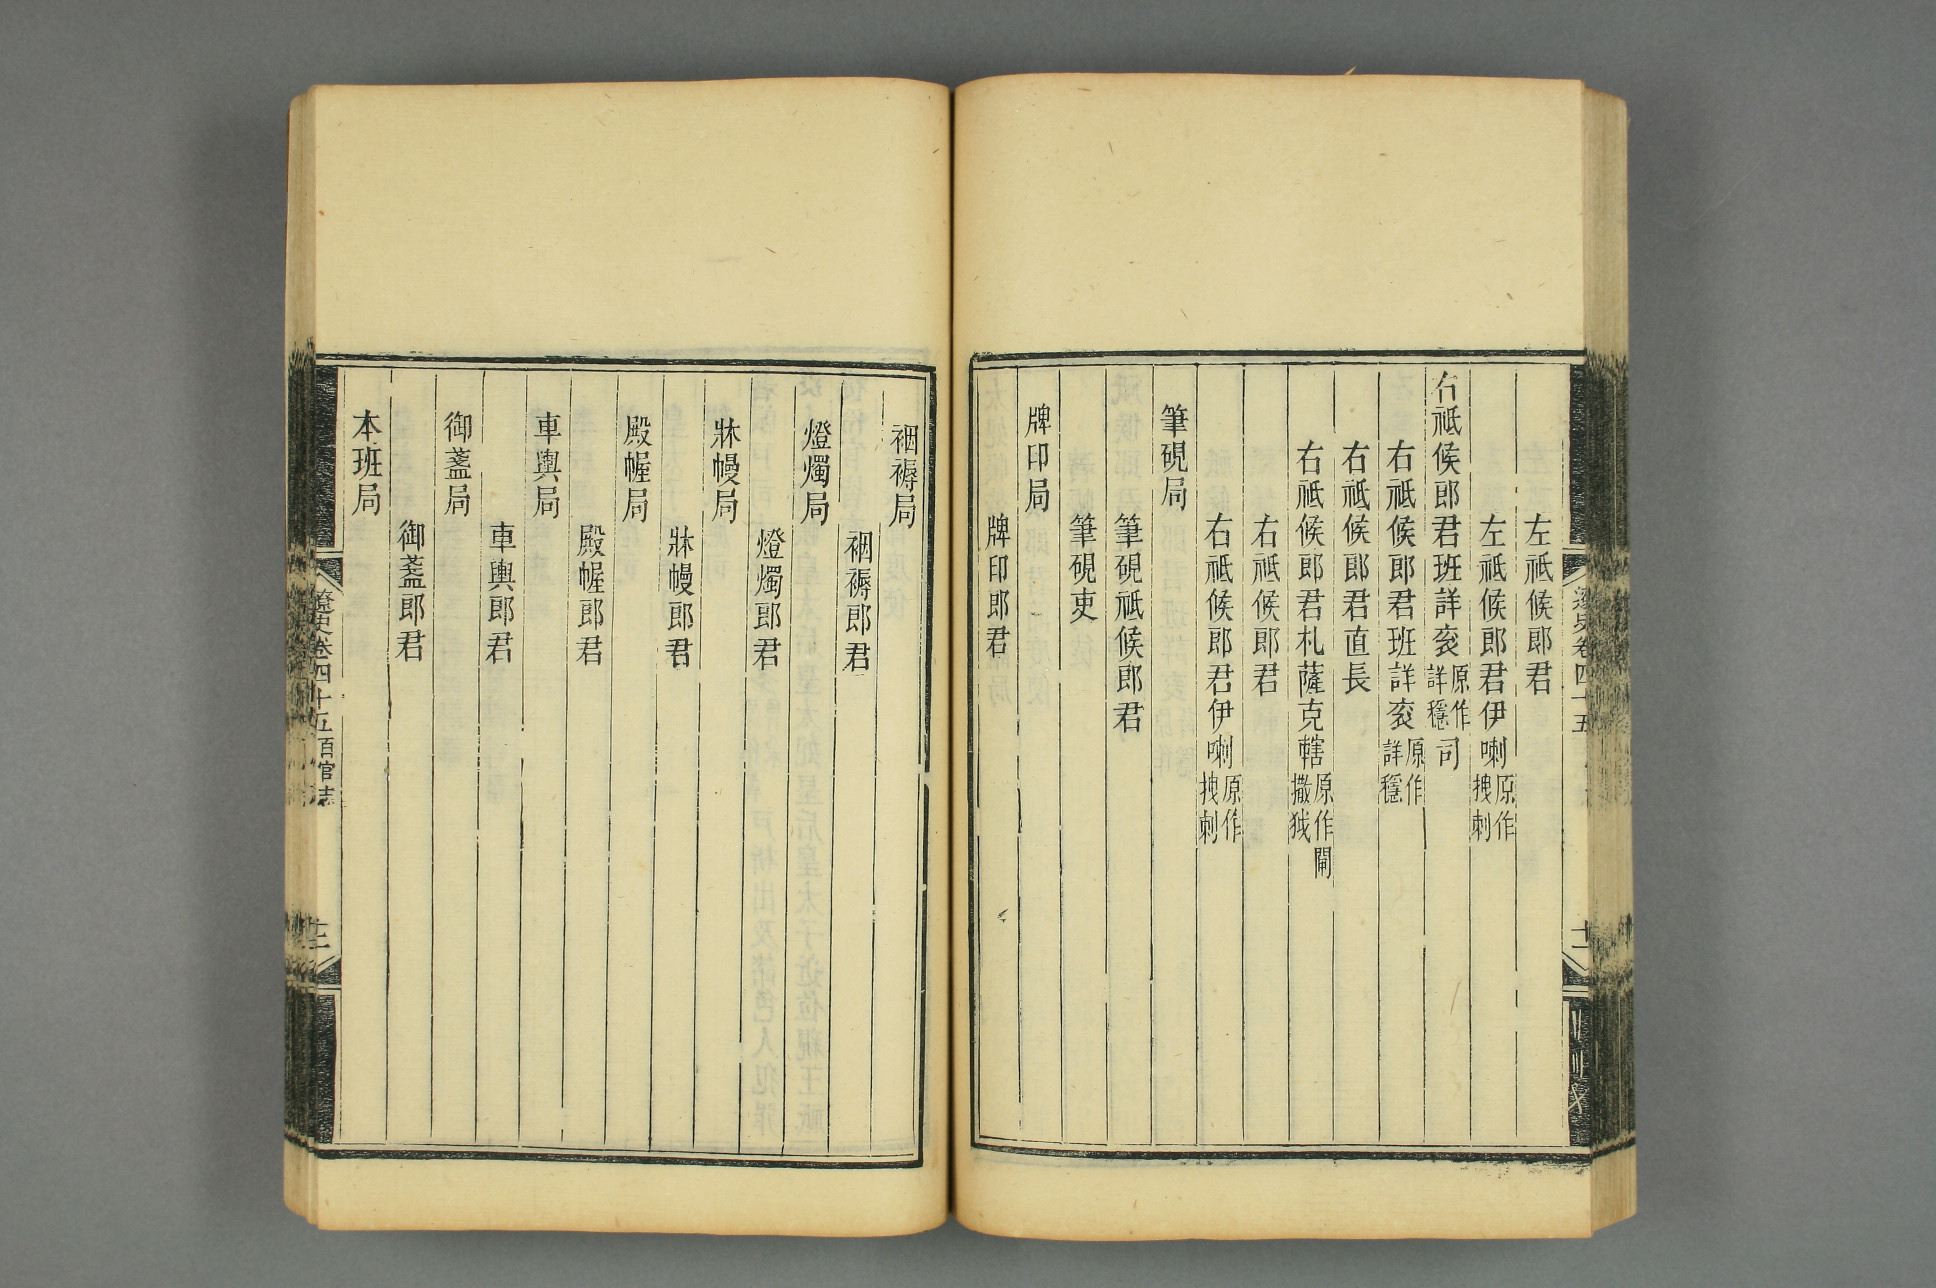 左祗候郎君
左祗候郎君伊喇原作拽剌
右祗候郎君班詳衮原作詳穩司
右祗候郎君班詳衮原作詳穩
右祗候郎君直長
右祗候郎君札薩克轄原作閘撒狘
右祗候郎君
右祗候郎君伊喇原作拽剌
筆硯局
筆硯祗候郎君
筆硯吏
牌印局
牌印郎君
裀褥局
裀褥郎君
燈燭局
燈燭郎君
牀幔局
牀幔郎君
殿幄局
殿幄郎君
車輿局
車輿郎君
御盞局
御盞郎君
本班局
遼史卷四十五百官志